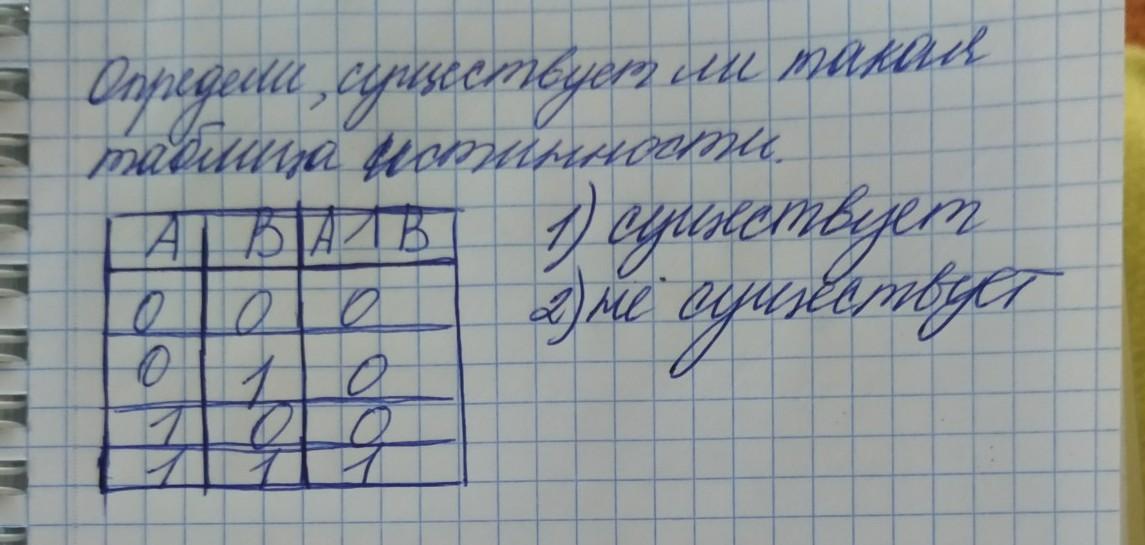 Определи, существует ли такая
таблица истинности.
A B A 1 B
0 0 0
0 1 0
1 0 0
1 1 1
1) существует
2) не существует